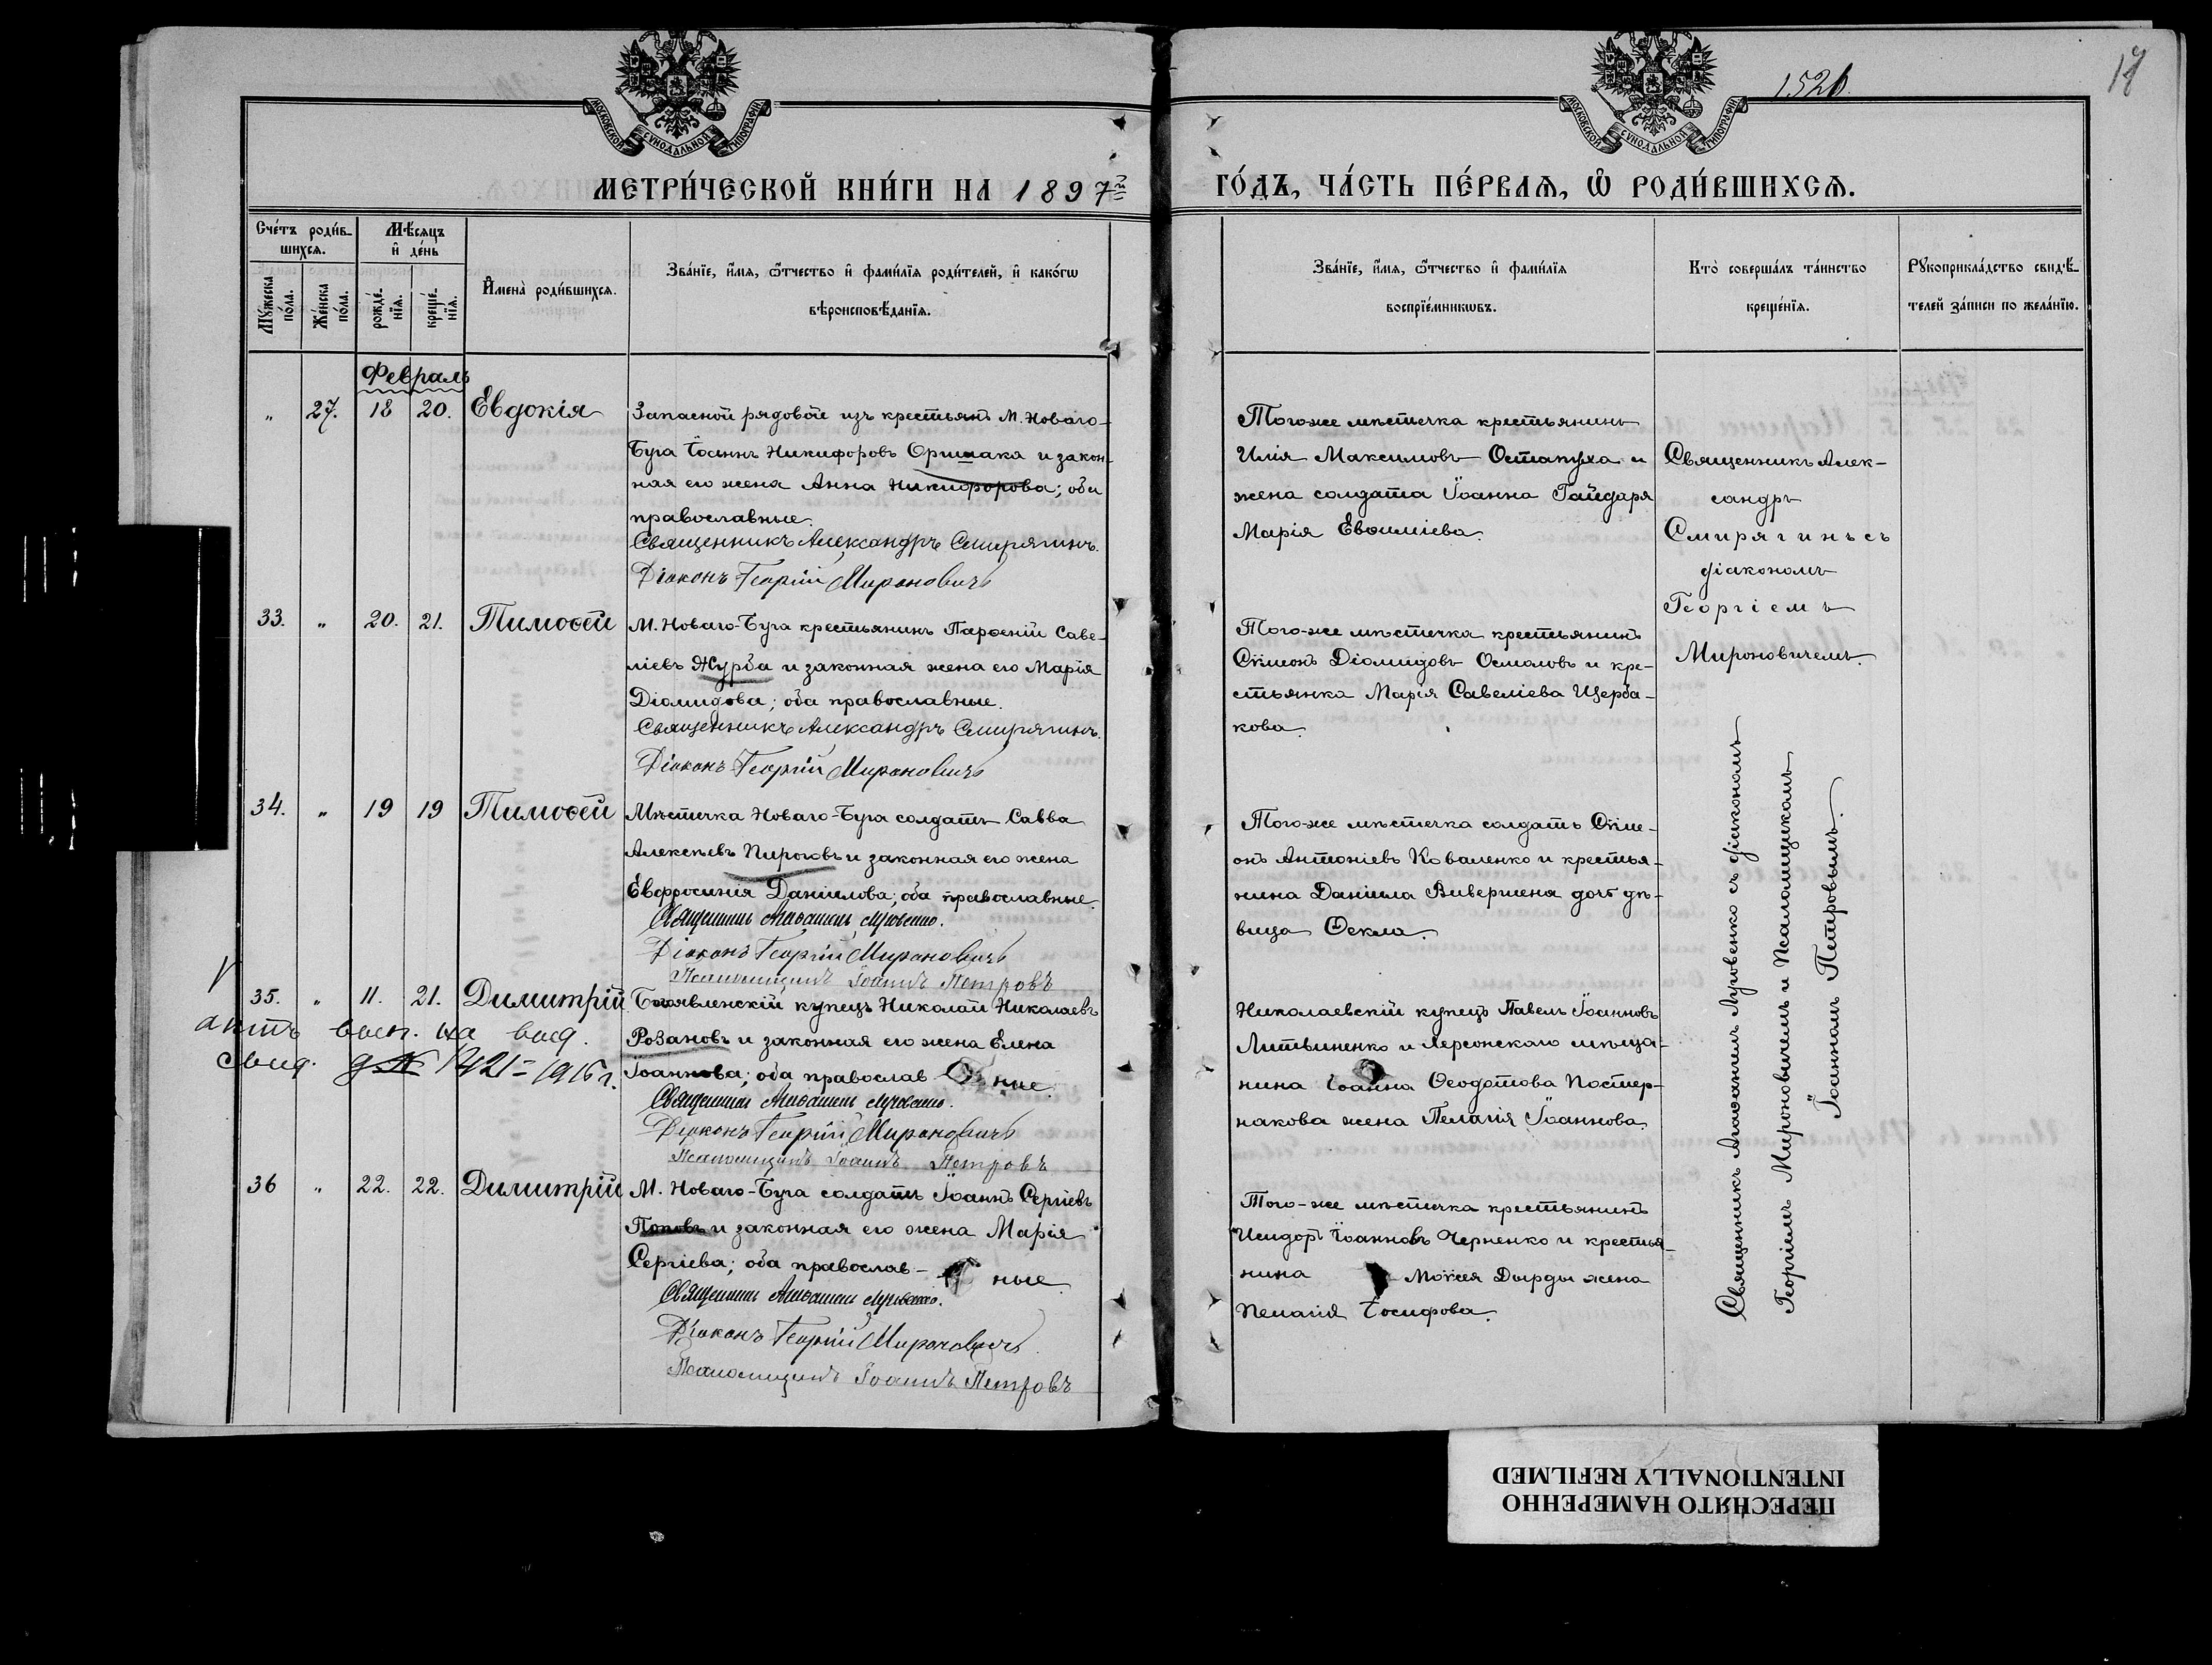 МОСКОВСКОЙ СУНОДАЛЬНОЙ ТИПОГРАФІИ
МОСКОВСКОЙ СУНОДАЛЬНОЙ ТИПОГРАФІИ
152
МЕТРИ́ЧЕСКОЙ КНИ́ГИ НА 1897й
ГО́ДЪ, ЧА́СТЬ ПЕ́РВАЯ, Ѿ РОДИ́ВШИХСЯ.
Сче́тъ роди́в-
шихся.
Мѣ́сяцъ
и҆ де́нь
Му́жеска
по́ла.
Же́нска
по́ла.
рожде́-
нїя.
креще́-
нїя.
И҆мена̀ роди́вшихся.
Зва́нїе, и҆́мя, ѻ҆́тчество и҆ фами́лїя роди́телей, и҆ како́гѡ
вѣроисповѣ́данїя.
Зва́нїе, и҆́мя, ѻ҆́тчество и҆ фами́лїя
воспрїе́мникѡвъ.
Кто̀ соверша́лъ та́инство
креще́нїя.
Рукоприкла́дство свидѣ́-
телей за́писи по жела́нїю.
Февраль
„ 27. 18 20. Евдокія
Запасной рядовой изъ крестьянъ М. Новаго-
Буга Іоаннъ Никифоровъ Оришака и закон-
ная его жена Анна Никифорова; оба
православные.
Священникъ Александръ Смирягинъ.
Діаконъ Георгій Мироновичъ
Того-же мѣстечка крестьянинъ
Илія Максимовъ Остапуха и
жена солдата Іоанна Гайдаря
Марія Евѳиміева.
Священникъ Алек-
сандръ
Смирягинъ съ
діакономъ
Георгіемъ
Мироновичемъ.
33. „ 20. 21. Тимоѳей
М. Новаго-Буга крестьянинъ Парѳеній Саве-
ліевъ Журба и законная жена его Марія
Діомидова; оба православные.
Священникъ Александръ Смирягинъ.
Діаконъ Георгій Мироновичъ
Того-же мѣстечка крестьянинъ
Сѷмеонъ Діомидовъ Осмоловъ и кре-
стьянка Марія Савеліева Щерба-
кова.
34. „ 19 19 Тимоѳей
Мѣстечка Новаго-Буга солдатъ Савва
Алексѣевъ Пироговъ и законная его жена
Евфросинія Даніилова; оба православные.
Священникъ Аѳанасій Луговенко.
Діаконъ Георгій Мироновичъ
Псаломщикъ Іоаннъ Петровъ
Того-же мѣстечка солдатъ Сѷме-
онъ Антоніевъ Коваленко и крестья-
нина Даніила Вивершеня дочь дѣ-
вица Ѳекла.
35. „ 11. 21. Димитрій
V
актъ восп. на выд.
свид. 1421 = 1916 г.
Богоявленскій купецъ Николай Николаевъ
Розановъ и законная его жена Елена
Іоаннова; оба православ ные.
Священникъ Аѳанасій Луговенко.
Діаконъ Георгій Мироновичъ
Псаломщикъ Іоаннъ Петровъ
Николаевскій купецъ Павелъ Іоанновъ
Литвиненко и Херсонскаго мѣща-
нина Іоанна Ѳеодотова Постер-
накова жена Пелагія Іоаннова.
36 „ 22. 22. Димитрій
М. Новаго-Буга солдатъ Іоаннъ Сергіевъ
Поповъ и законная его жена Марія
Сергіева; оба православ- ные.
Священникъ Аѳанасій Луговенко.
Діаконъ Георгій Мироновичъ.
Псаломщикъ Іоаннъ Петровъ
Того-же мѣстечка крестьянинъ
Исидоръ Іоанновъ Черненко и крестья-
нина Моѷсея Дырды жена
Пелагія Іосифова.
Священникъ Аѳанасій Луговенко съ діакономъ
Георгіемъ Мироновичемъ и Псаломщикомъ
Іоанномъ Петровымъ.
ПЕРЕСНЯТО НАМЕРЕННО
INTENTIONALLY REFILMED